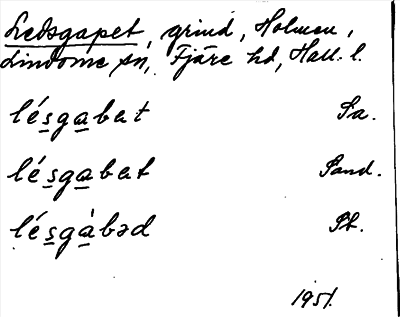 Ledsgapet, grind, Holmen,
Lindome sn, Fjäre hd, Hall. l.
lésgabat Sa.
lésgabat Sand.
lésgàbəd
1951.